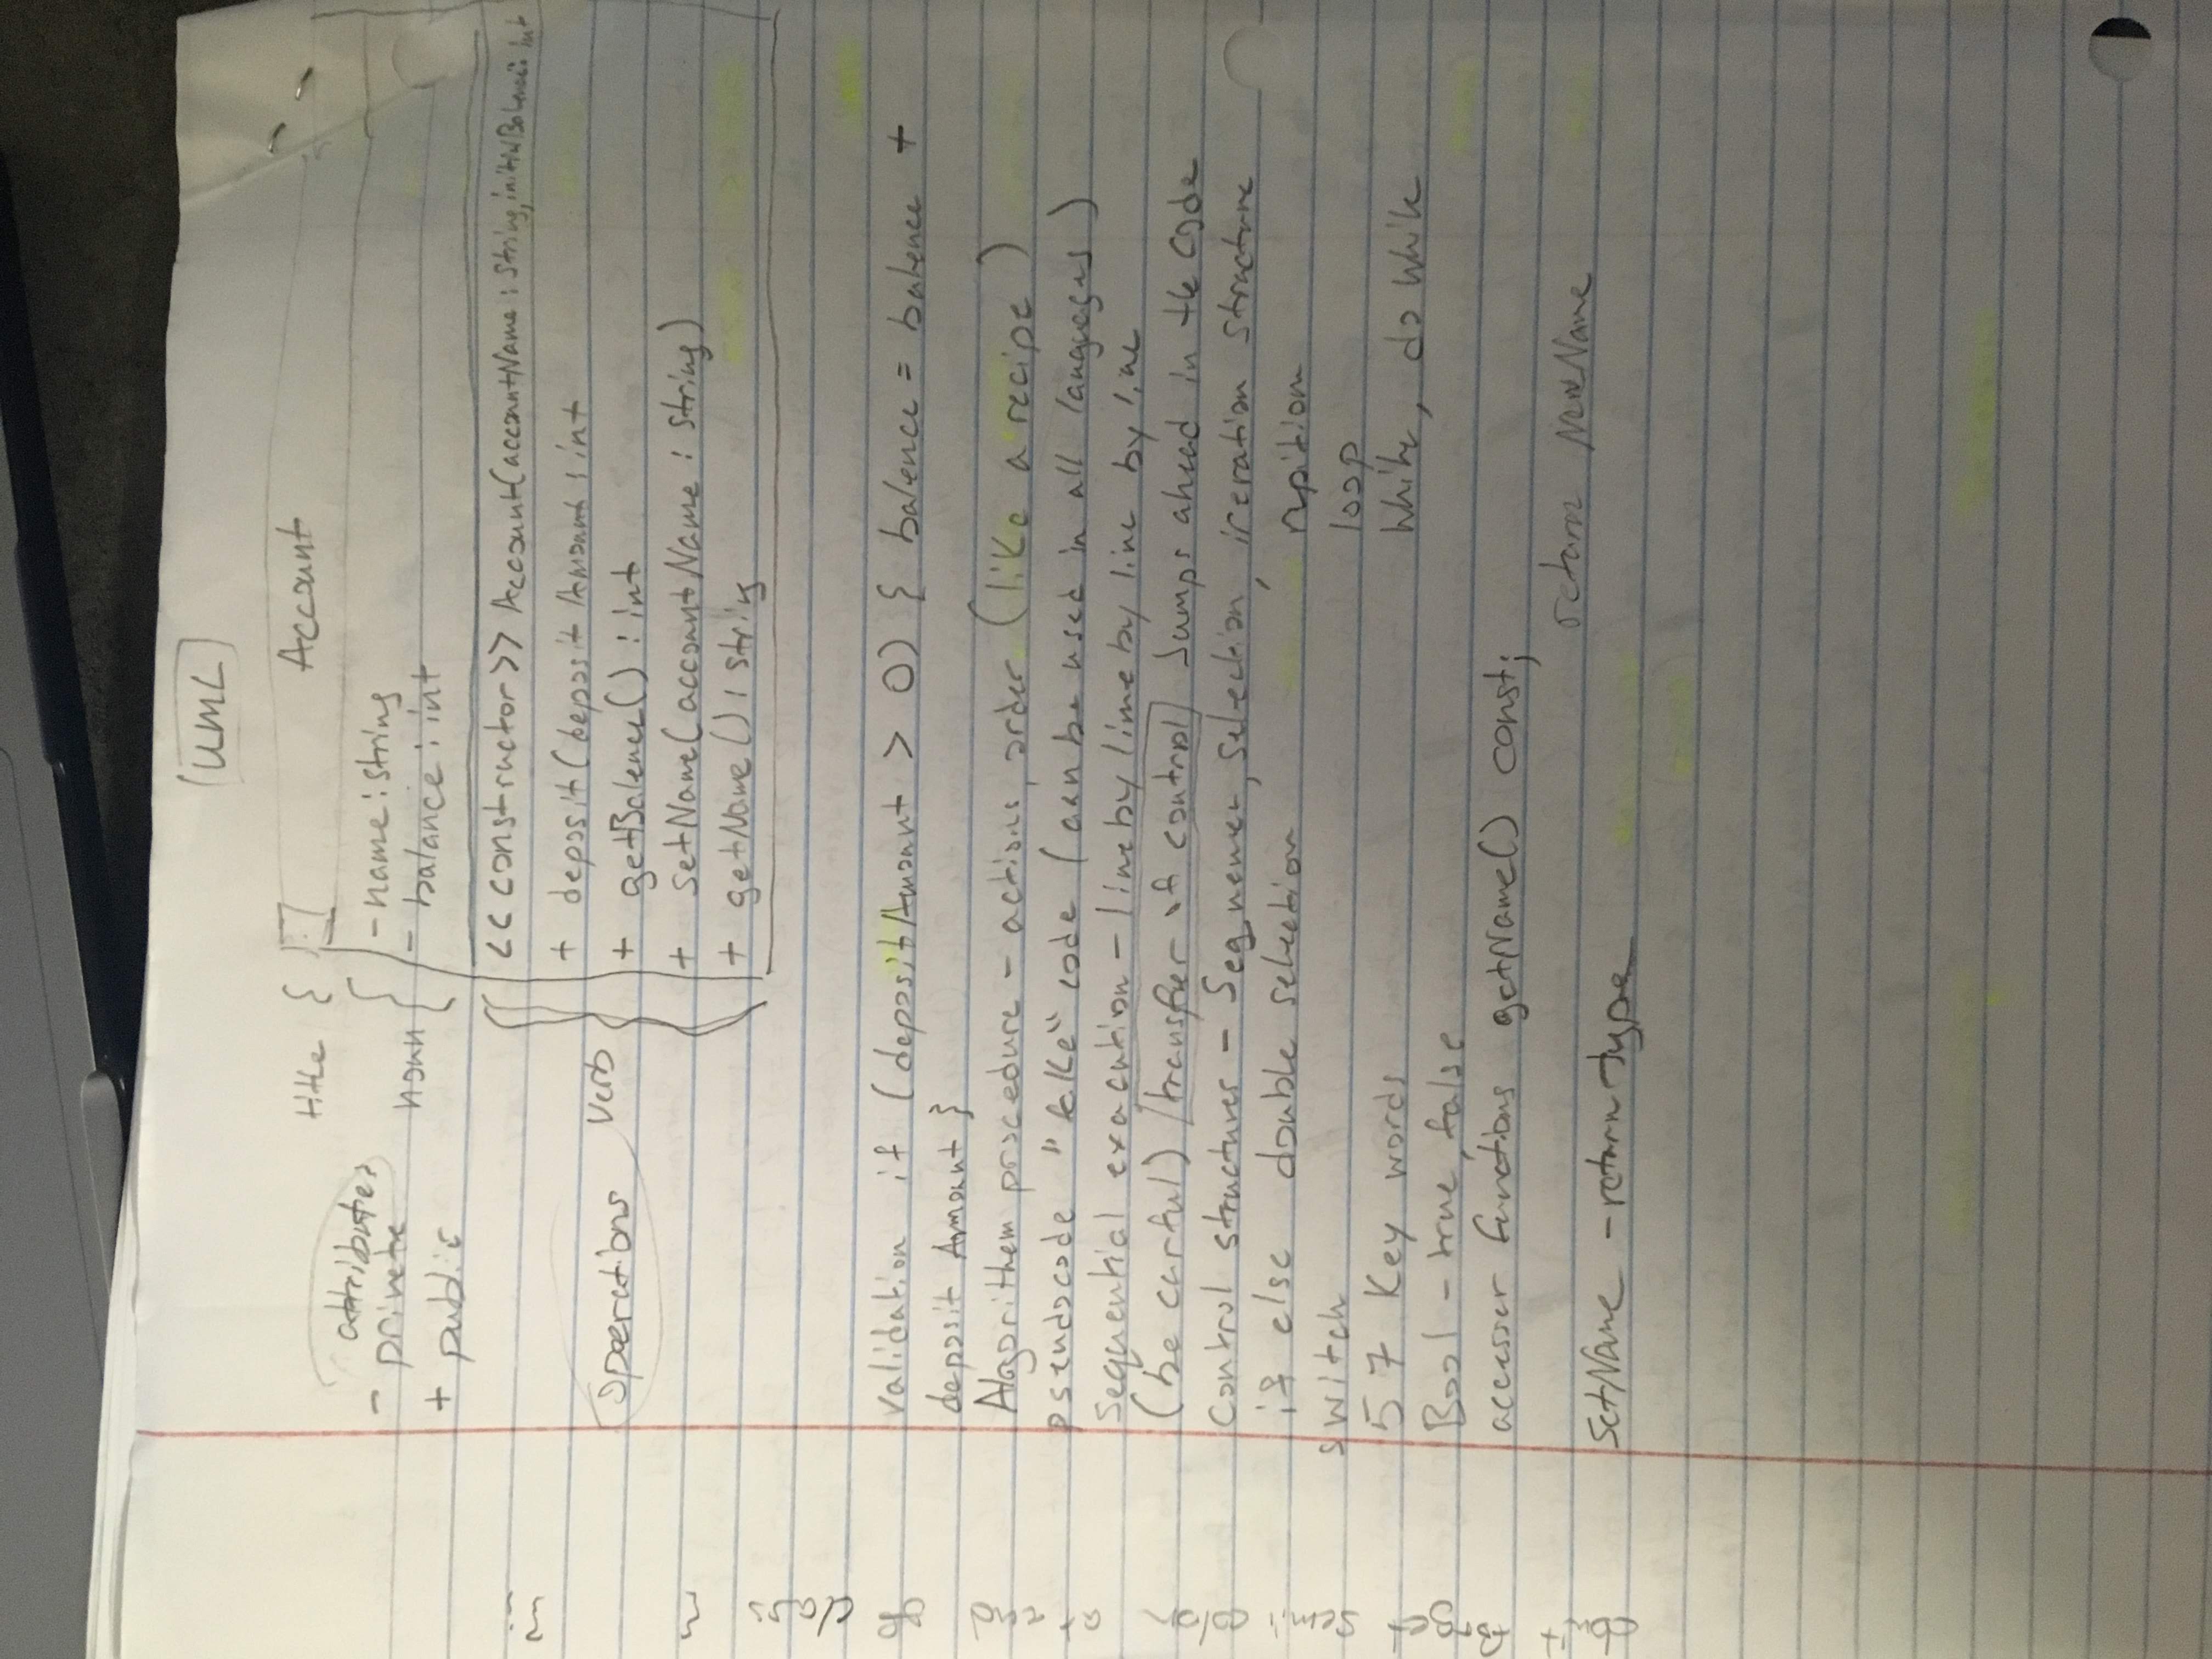 UML
title { Account
attributes
- privete
noun { - name : string
+ public
- balance : int
<<constructor>> Account(accountName : string, initialBalence : int
+ deposit(deposit Amount : int
Operations verb
+ getBalence() : int
+ setName(accountName : string)
+ getName() : string
validation if (depositAmount > 0) { balence = balence +
deposit Amount }
Algorithem procedure - actions, order (like a recipe)
pseudocode "fake" code (can be used in all languages)
Sequential execution - line by line by line by line
(be carful) transfer of control Jumps ahead in the code
Control structures - Sequence, selection, iteration structure
if else double selection repition
switch loop
57 Key words while, do while
Bool - true, false
accessor functions getName() const;
return NewName
SetName - return type